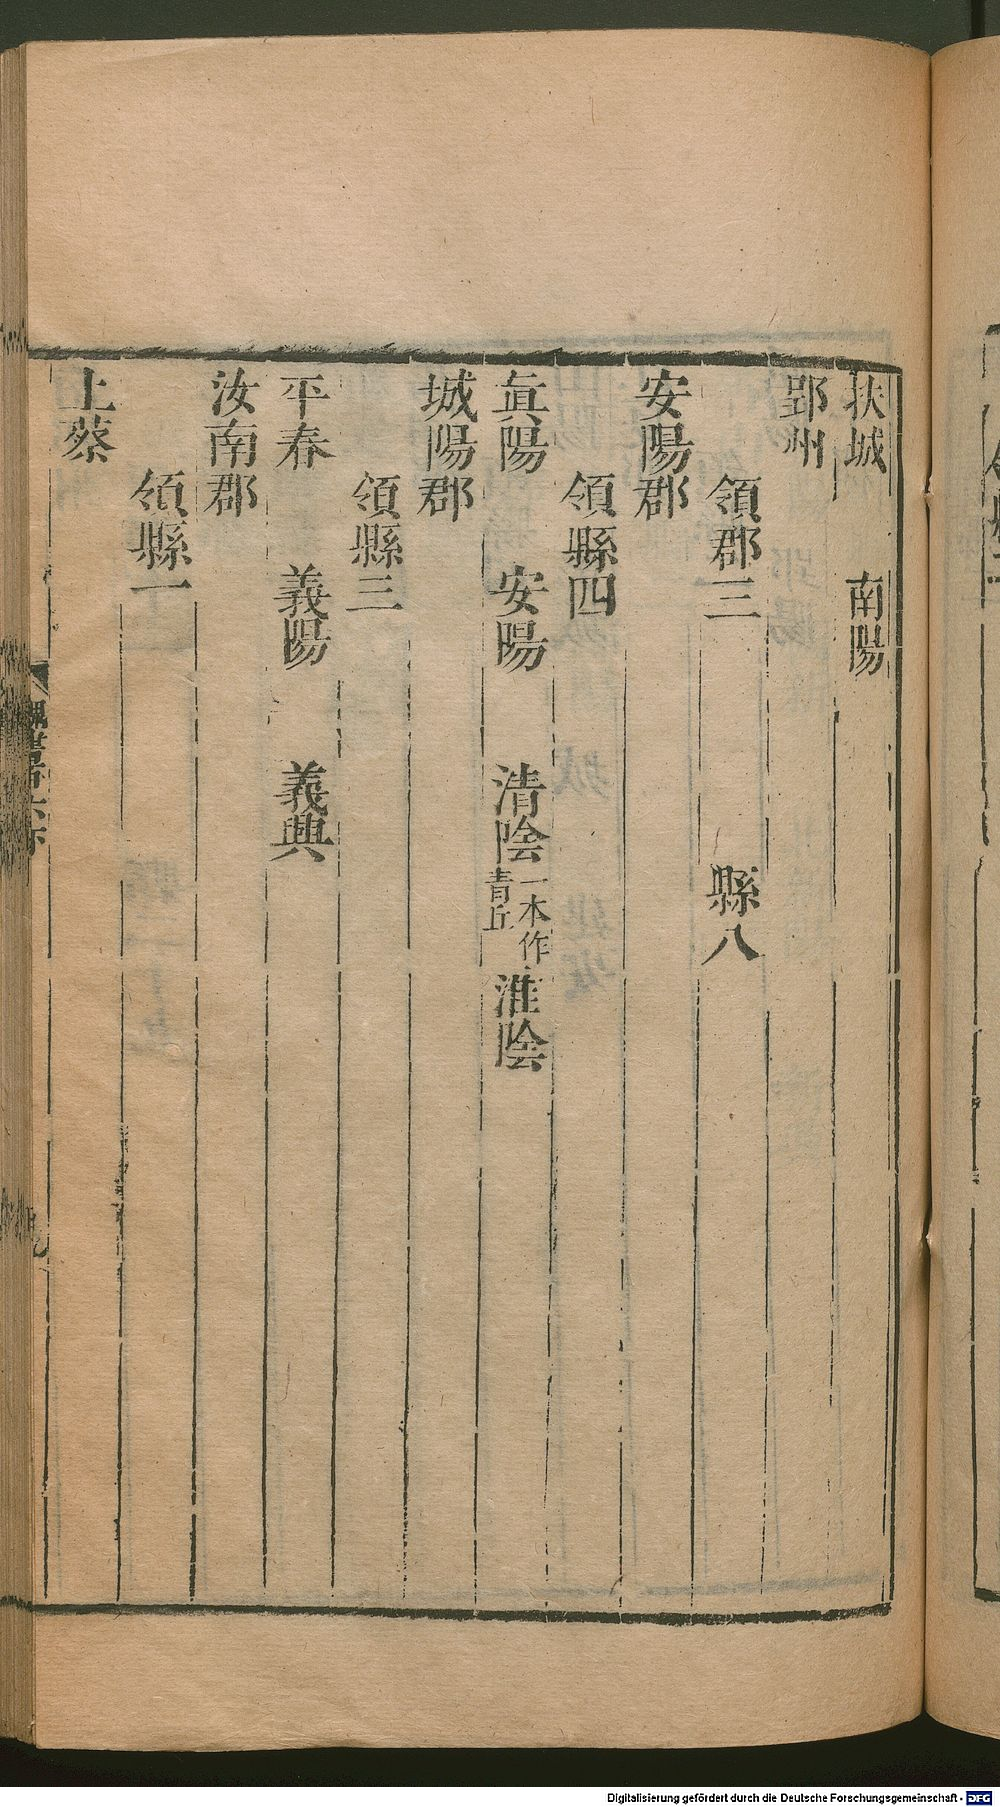 扶城　南陽
郢州
領郡三　縣八
安陽郡
領縣四
眞陽　安陽　清陰一本作青丘　淮陰
城陽郡
領縣三
平春　義陽　義興
汝南郡
領縣一
上蔡
Digitalisierung gefördert durch die Deutsche Forschungsgemeinschaft - DFG